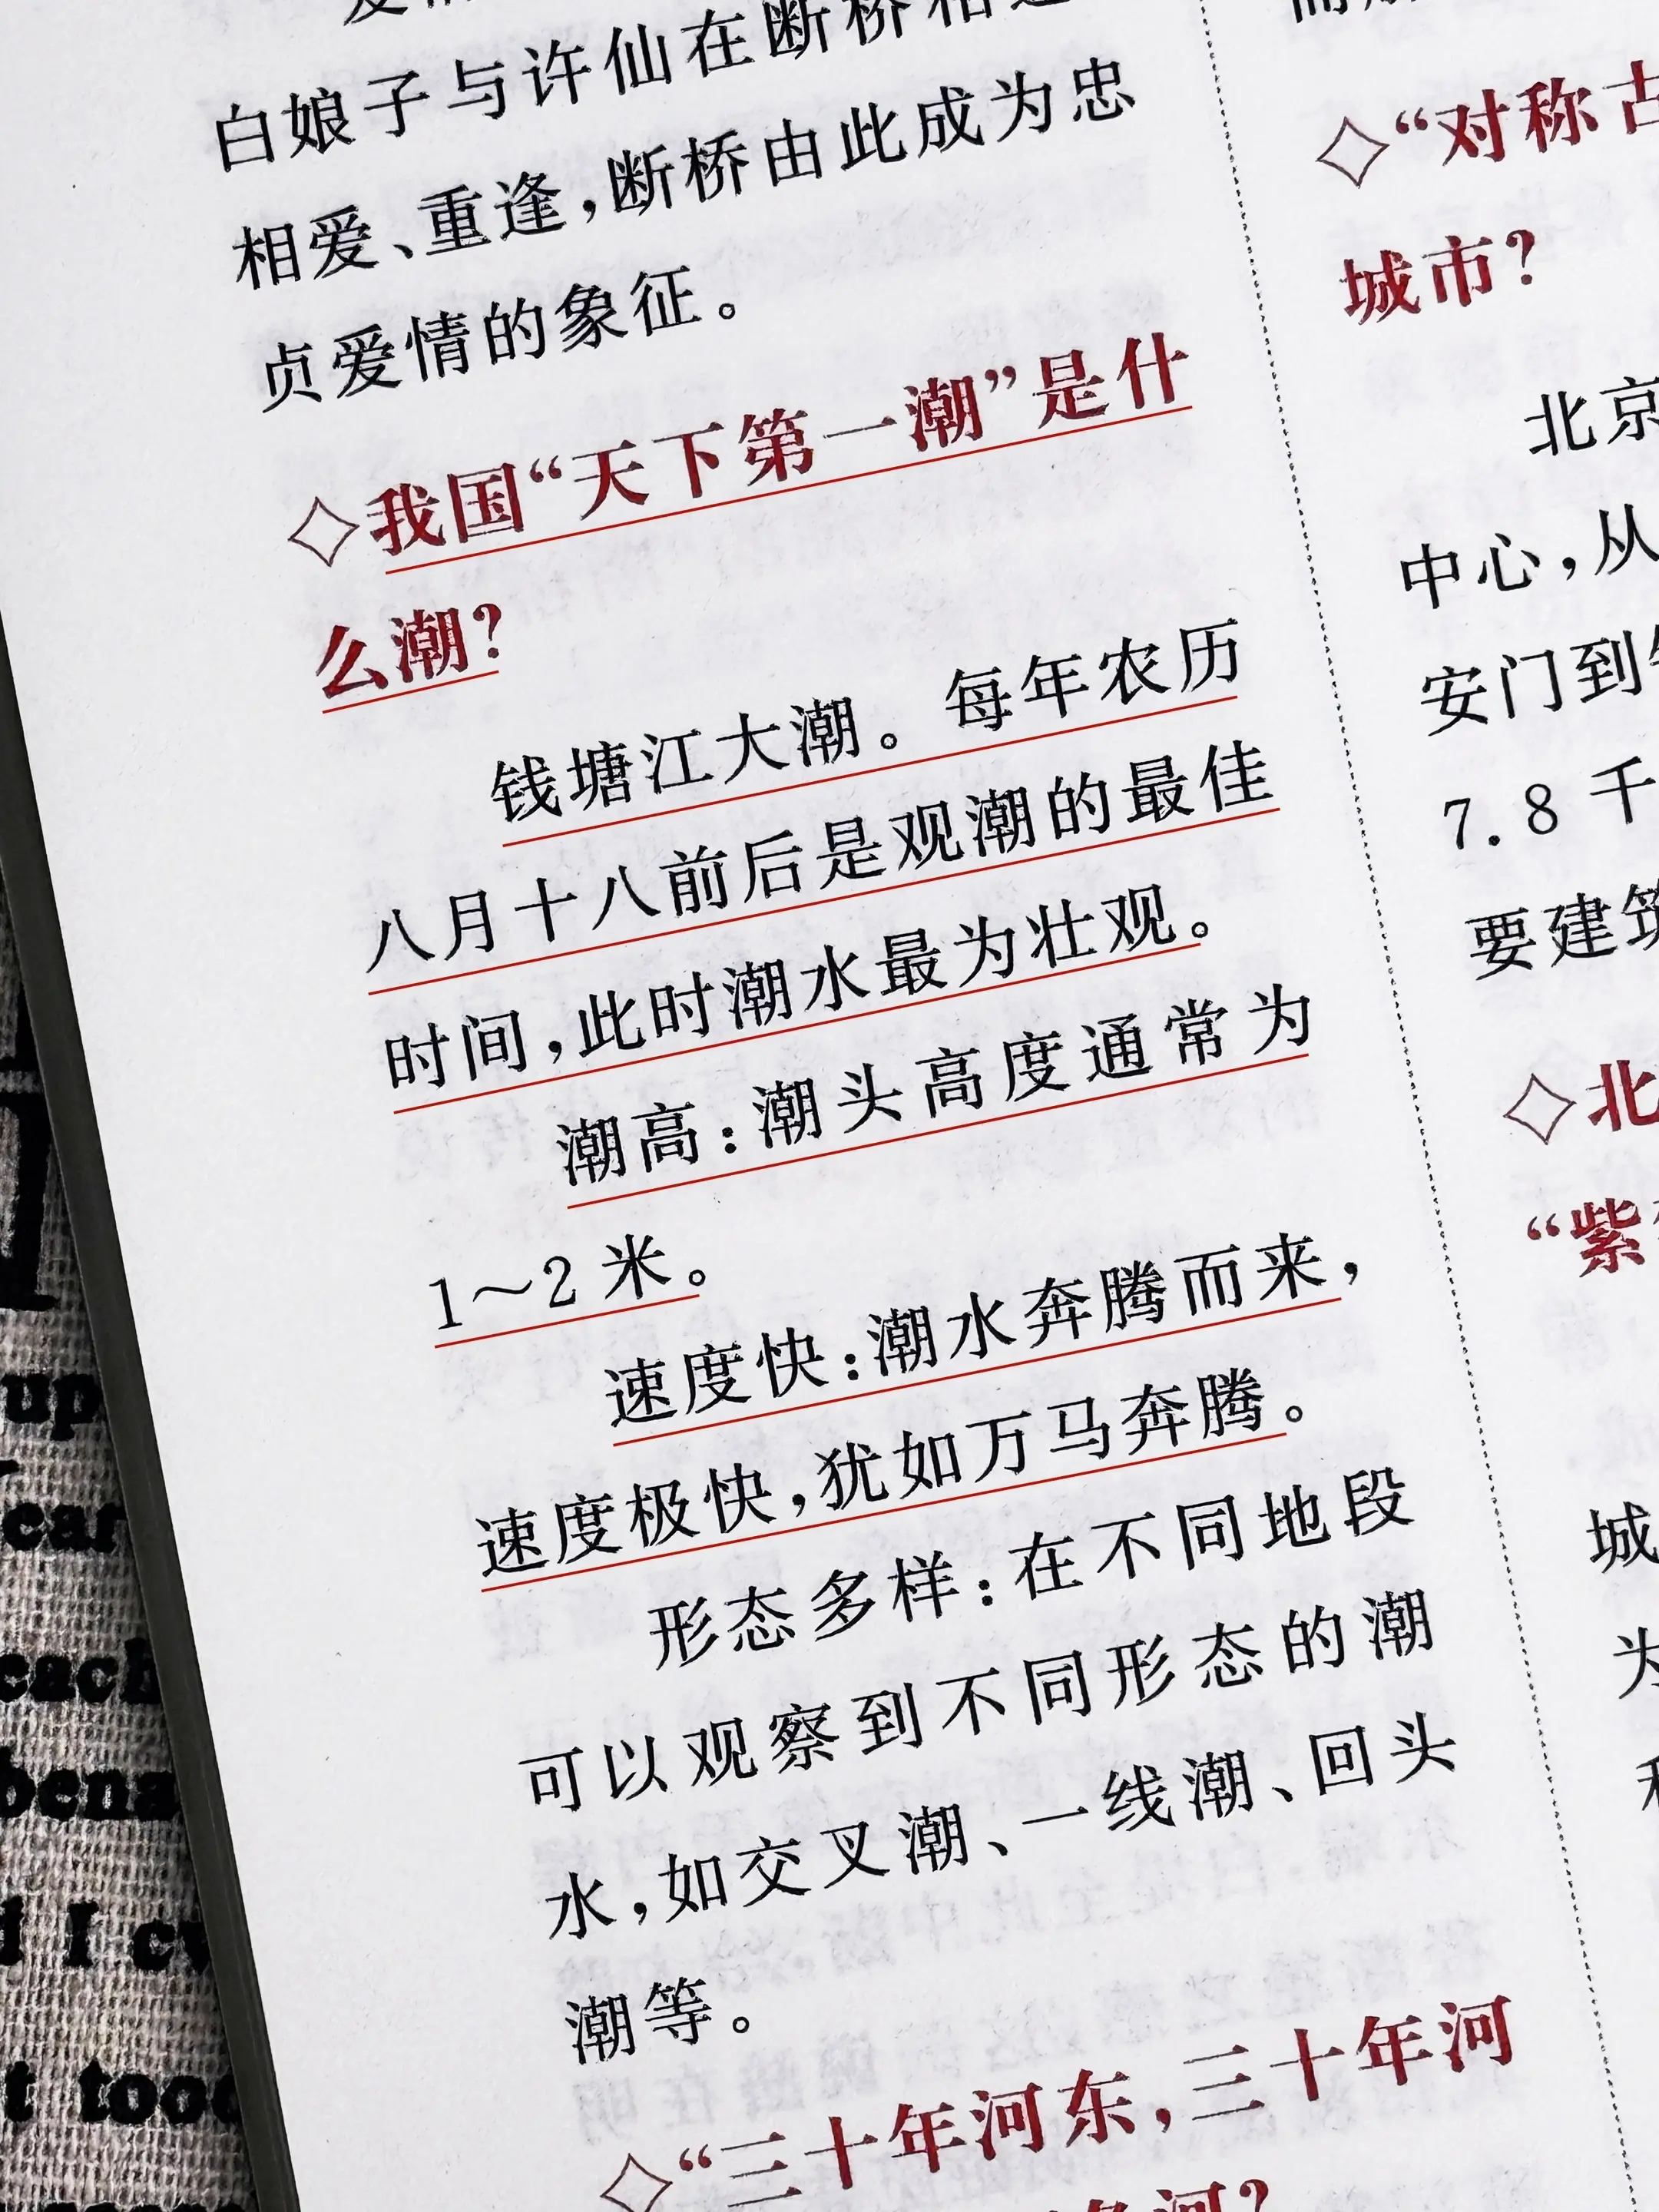 白娘子与许仙在断桥相
相爱、重逢,断桥由此成为忠
贞爱情的象征。
◇我国“天下第一潮”是什
么潮?
钱塘江大潮。每年农历
八月十八前后是观潮的最佳
时间,此时潮水最为壮观。
潮高:潮头高度通常为
1~2 米。
速度快:潮水奔腾而来,
速度极快,犹如万马奔腾。
形态多样:在不同地段
可以观察到不同形态的潮
水,如交叉潮、一线潮、回头
潮等。
◇“三十年河东,三十年河
河?
◇“对称古
城市?
北京
中心,从
安门到
7.8 千
要建筑
◇北
“紫
城
为
up
each
I